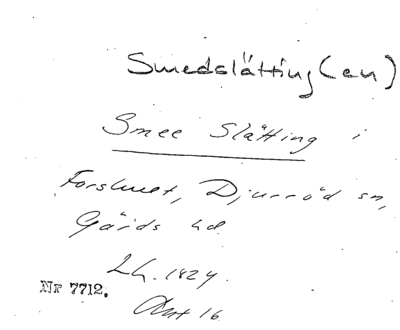 Smedslätting(en)
Smee Slätting i
Forshuset, Djurröd sn,
Gärds hd
Lh. 1824.
Nr 7712.
Akt 16